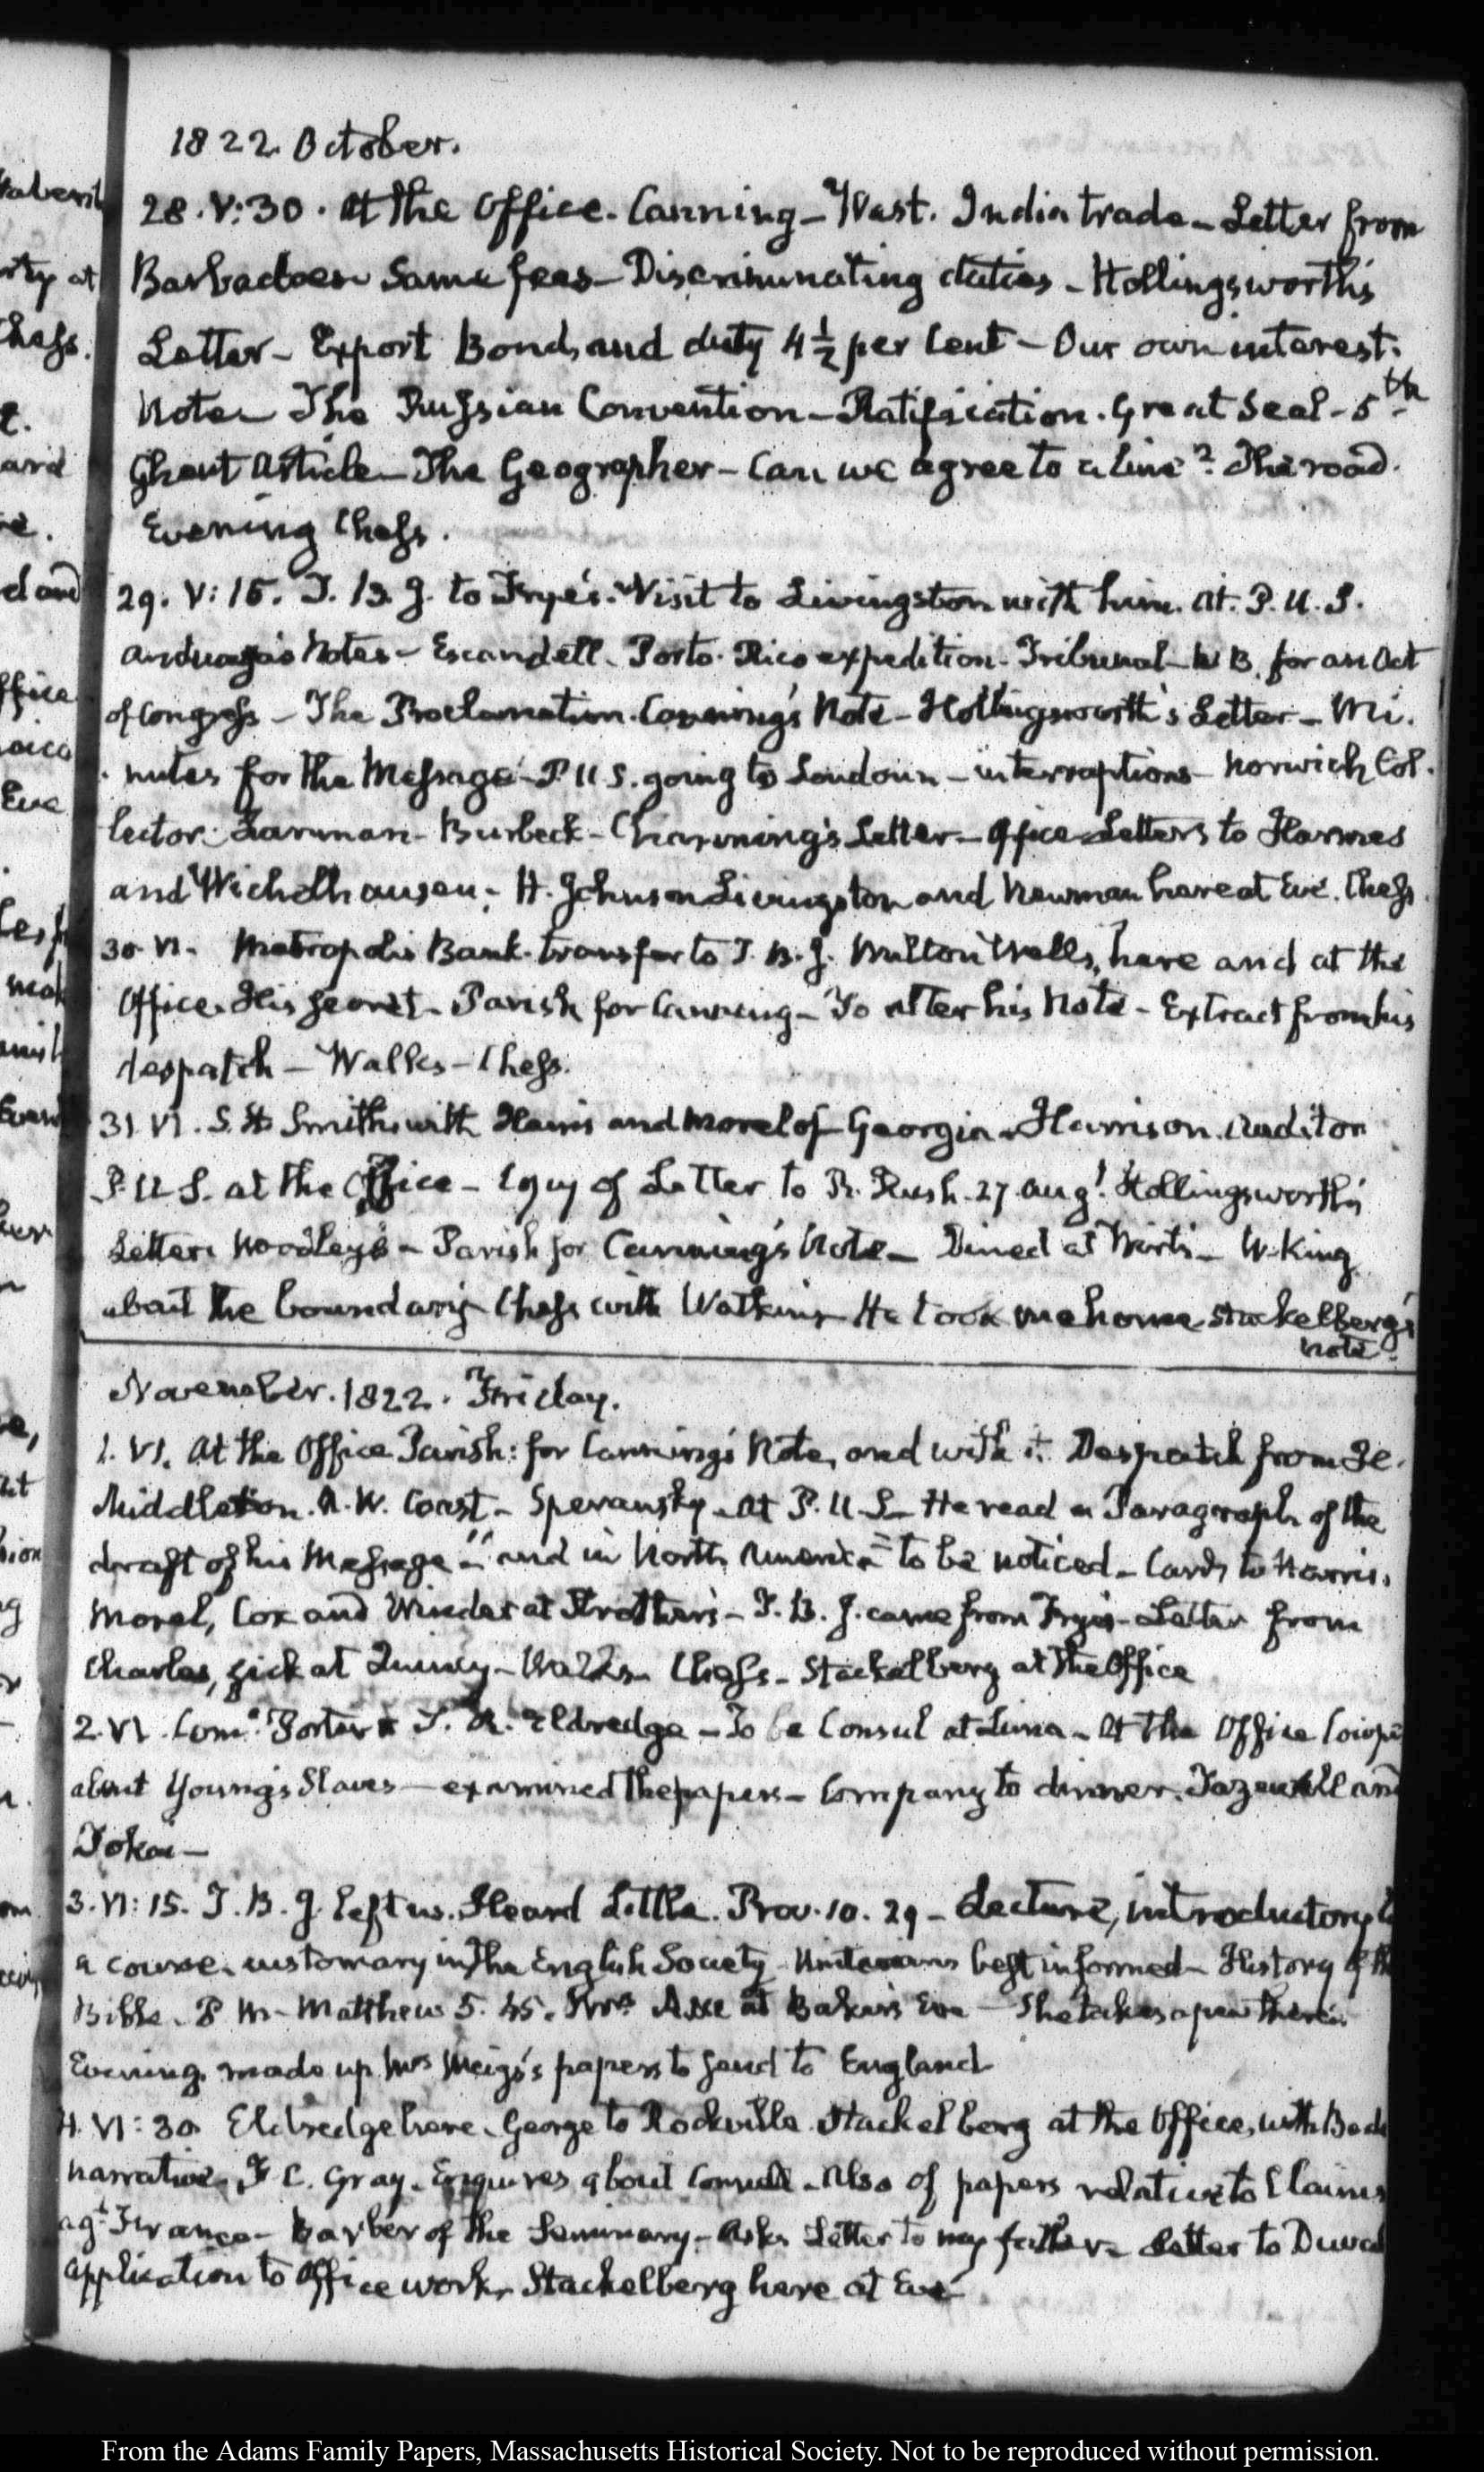 1822. October.
28. V:30. At the Office. Canning – West. India trade – Letter from
Barbadoes Same fees – Discriminating duties – Hollingsworth's
Letter – Export Bond, and duty 4½ per Cent – Our own interest.
Note – The Russian Convention – Ratification. Great Seal – 5th
Ghent Article – The Geographer – Can we agree to a line? The road.
Evening Chess.
29. V:15. T. B. J. to Frye's. Visit to Livingston with him. At P. U. S.
Anduaga's Notes – Escandell. Porto Rico expedition. Tribunal – for an Act
of Congress – The Proclamation. Canning's Note – Hollingsworth's Letter – Mi.
nutes for the Message – P U S. going to Loudoun – interruptions – Norwich Col.
lector. Lanman – Burbeck – Channing's Letter – Office Letters to Harmes
and Wichelhausen. H. Johnson Livingston and Newman here at Eve. Chess.
30 VI. Metropolis Bank. transfer to T. B. J. Milton Wells, here and at the
Office. His secret – Parish for Canning – To alter his Note – Extract from his
despatch – Walks – Chess.
31 VI. S. H. Smith with Harris and Morel of Georgia. Harrison. Auditor
P. U S. at the Office – Copy of Letter to R. Rush. 27 Augt. Hollingsworth's
Letter. Woodley's – Parish for Canning's Note – Dined at Wirt's – W. King
about the boundary – Chess with Watkins He took me home. Stackelberg's
note.
November. 1822. Friday.
1. VI. At the Office Parish: for Canning's Note, and with it. Despatch from
Middleton. N. W. Coast – Speransky. At P. U S – He read a Paragraph of the
draft of his Message – "and in North America" to be noticed – Cards to Harris.
Morel, Cox and Winder at Strother's – T. B. J. came from Frye's – Letter from
Charles, sick at Quincy – Walks – Chess – Stackelberg at the Office
2. VI. Comr. Porter J. R. Eldredge – To be Consul at Lima – At the Office
about Young's Slaves – examined the papers – Company to dinner. Tazewell and
Tokai –
3. VI:15. T. B. J. left us. Heard Little. Prov. 10. 29 – Lecture, introductory to
a course. customary in the English Society – Unitarians best informed – History of the
Bible. P M – Matthew 5. 45. Mrs. at Baker's Eve – She takes a pew there.
Evening. made up Mrs Meigs's papers to send to England
4. VI:30. Eldredge here. George to Rockville. Stackelberg at the Office, with
narrative. F. C. Gray. Enquires about Consul. Also of papers relative to Claims
agt. France – Barber of the Seminary – Asks Letter to my father – Letter to Duval
application to Office work. Stackelberg here at Eve
From the Adams Family Papers, Massachusetts Historical Society. Not to be reproduced without permission.